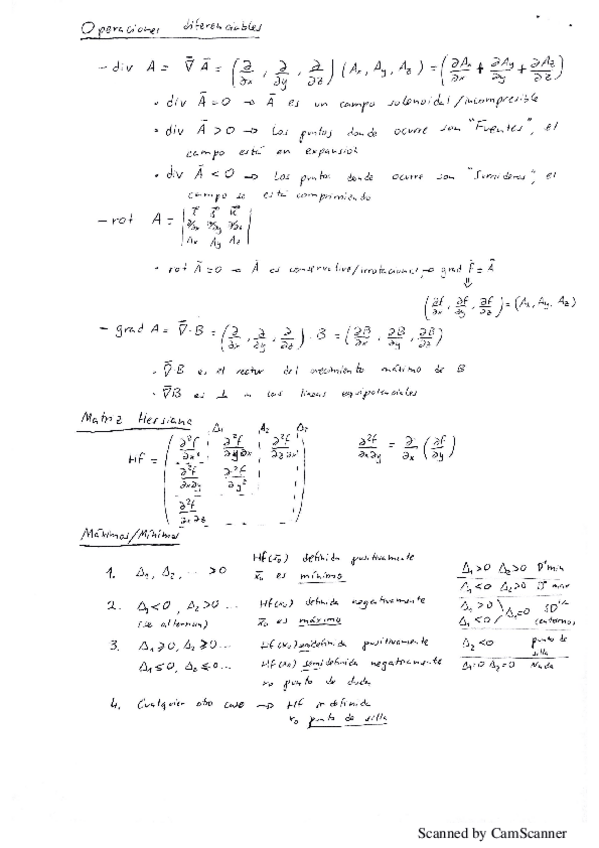 Operaciones diferenciables
- div A = ∇⃗ A⃗ = (∂/∂x, ∂/∂y, ∂/∂z) (Ax, Ay, Az) = (∂Ax/∂x + ∂Ay/∂y + ∂Az/∂z)
• div A⃗ = 0 → A⃗ es un campo solenoidal/incompresible
• div A⃗ > 0 → Los puntos donde ocurre son "Fuentes", el
campo está en expansión
• div A⃗ < 0 → Los puntos donde ocurre son "Sumideros", el
campo se está comprimiendo
- rot A = | i⃗ j⃗ k⃗ |
| ∂/∂x ∂/∂y ∂/∂z |
| Ax Ay Az |
• rot A⃗ = 0 → A⃗ es conservativo/irrotacional → grad f = A⃗
⇓
(∂f/∂x, ∂f/∂y, ∂f/∂z) = (Ax, Ay, Az)
- grad A = ∇⃗·B = (∂/∂x, ∂/∂y, ∂/∂z) · B = (∂B/∂x, ∂B/∂y, ∂B/∂z)
• ∇⃗·B es el vector del crecimiento máximo de B
• ∇⃗B es ⊥ a las líneas equipotenciales
Matriz Hessiana
Hf = ∂²f/∂x² ∂²f/∂y∂x ∂²f/∂z∂x
∂²f/∂x∂y ∂²f/∂y²
∂²f/∂x∂z
∂²f/∂x∂y = ∂/∂x (∂f/∂y)
Máximos/Mínimos
1. Δ₁, Δ₂, ... > 0 Hf(x₀) definida positivamente
x̄₀ es mínimo
2. Δ₁<0, Δ₂>0 ... Hf(x₀) definida negativamente
(se alternan) x̄₀ es máximo
3. Δ₁⩾0, Δ₂⩾0... Hf(x₀) semidefinida positivamente
Δ₁≤0, Δ₂≤0... Hf(x₀) semidefinida negativamente
x₀ punto de duda
4. Cualquier otro caso → Hf indefinida
x₀ punto de silla
Δ₁>0 Δ₂>0 D⁺ min
Δ₁<0 Δ₂>0 D⁻ max
Δ₁>0
Δ₁<0 / Δ₂=0 SD
Δ₂<0 punto de
silla
Δ₁=0 Δ₂=0 Nada
Scanned by CamScanner